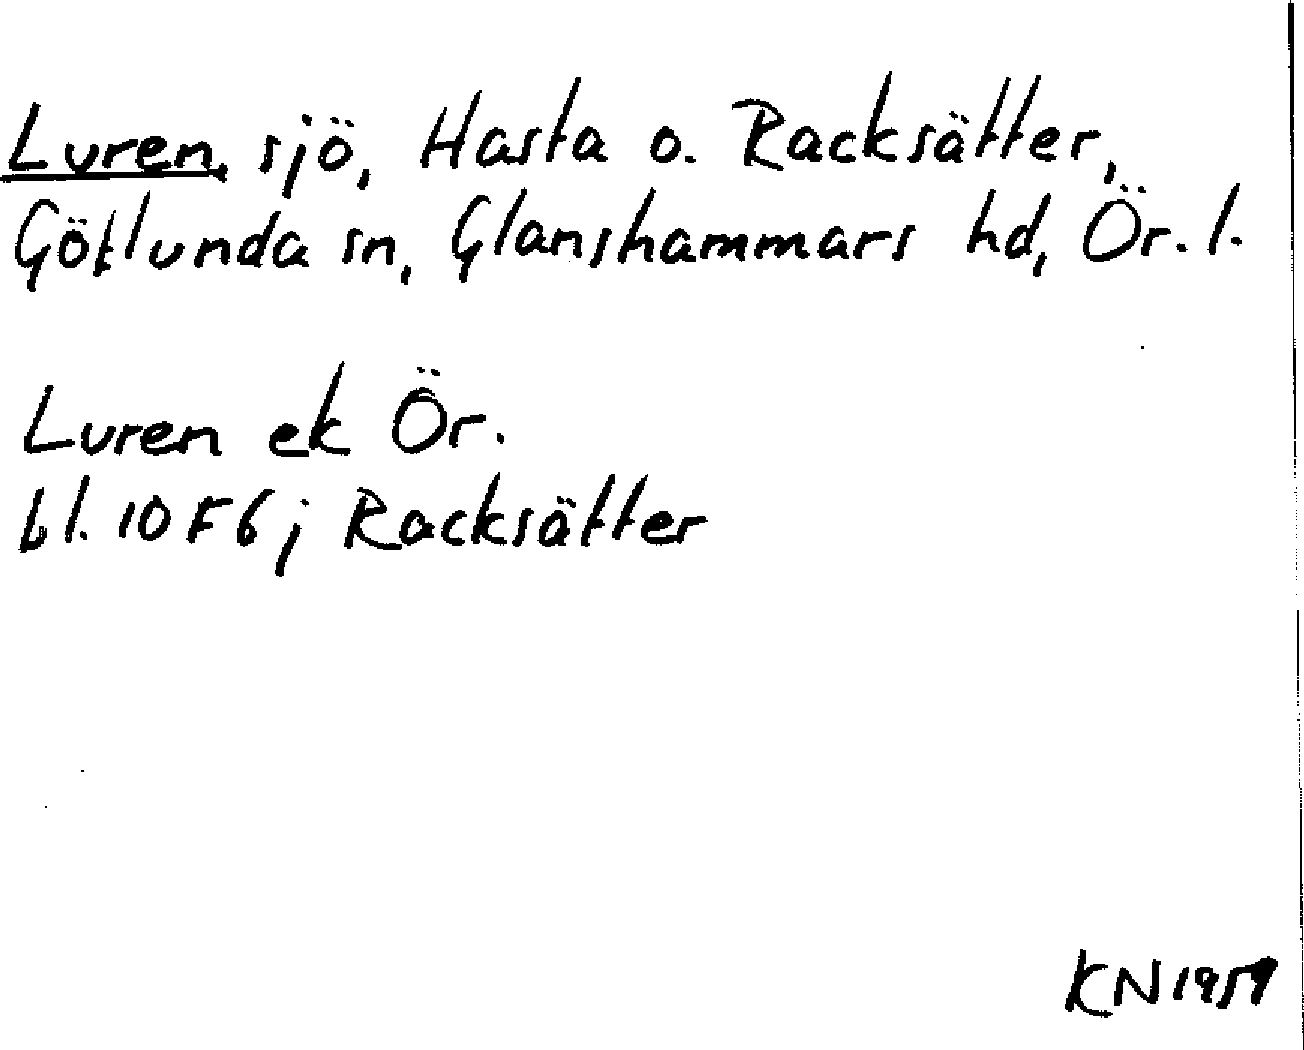 Luren, sjö, Hasta o. Racksätter,
Götlunda sn, Glanshammars hd, Ör. l.
Luren ek Ör.
bl. 10F6j Racksätter
KN 1959